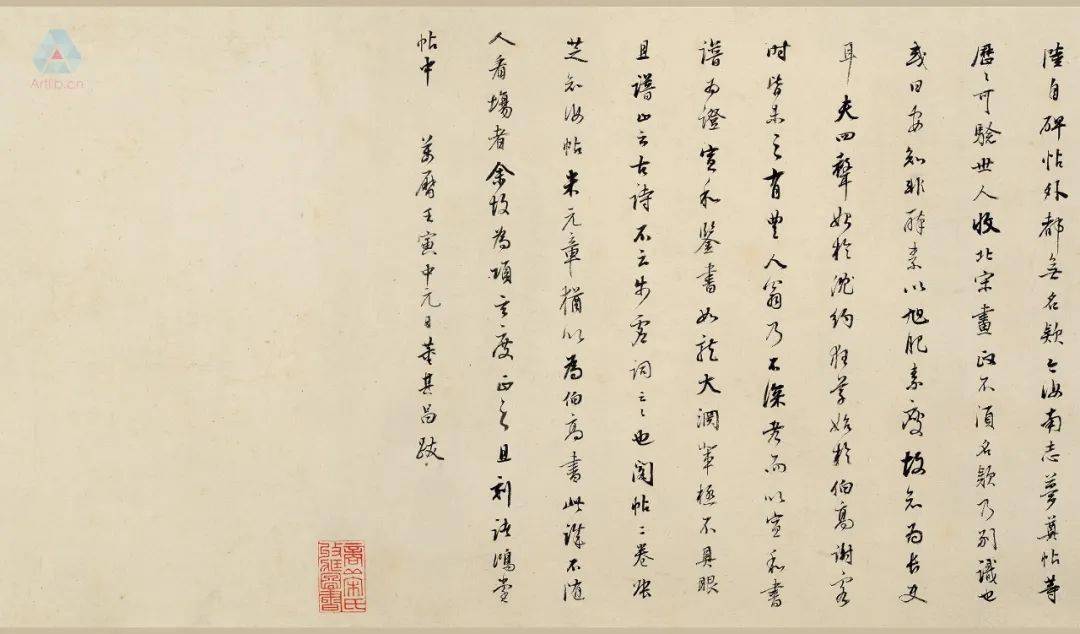 陸自碑帖外都無名欵今汝南志夢奠帖等
歷〻可驗世人收北宋畫政不須名款乃別識也
或曰安知非醉素以旭肥素瘦故知為長史
耳夫四聲始於沈約狂草始於伯高謝客
時皆未之有豐人翁乃不深考而以宣和書
譜為證宣和鑒書如龍大淵輩極不具眼
且譜止云古詩不云步虛詞云〻也閣帖二卷張
芝知汝帖米元章猶以為伯高書此誤不隨
人看場者余故為項玄度正之且刻諸鴻堂
帖中 萬曆壬寅中元日董其昌跋
Artlib.cn